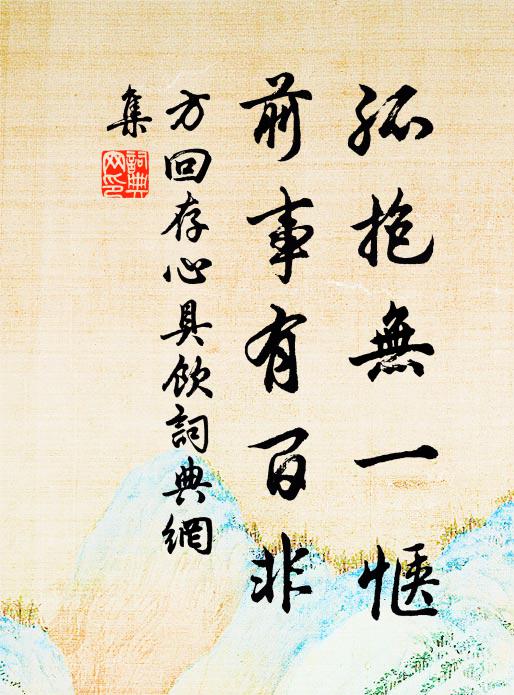 孤抱無一愜
前事有百非
方回存心具飲詞典網
集
詞典網印